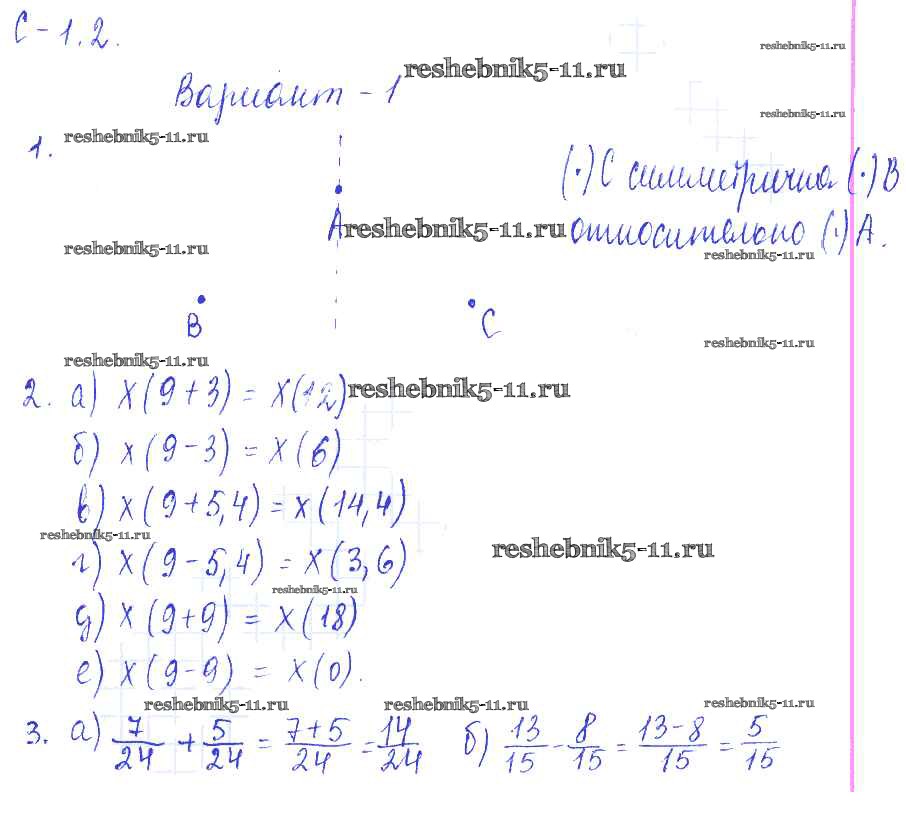 С-1.2.
Вариант-1
reshebnik5-11.ru
reshebnik5-11.ru
reshebnik5-11.ru
1.
reshebnik5-11.ru
(·) С симметрична (·) В
А
reshebnik5-11.ru
относительно (·) А.
reshebnik5-11.ru
reshebnik5-11.ru
В
С
reshebnik5-11.ru
reshebnik5-11.ru
2. а) x(9+3) = x(12)
reshebnik5-11.ru
б) x(9-3) = x(6)
в) x(9+5,4) = x(14,4)
reshebnik5-11.ru
г) x(9-5,4) = x(3,6)
reshebnik5-11.ru
reshebnik5-11.ru
д) x(9+9) = x(18)
е) x(9-9) = x(0).
reshebnik5-11.ru
reshebnik5-11.ru
reshebnik5-11.ru
3. а) 7/24 + 5/24 = 7+5/24 = 14/24 б) 13/15 - 8/15 = 13-8/15 = 5/15